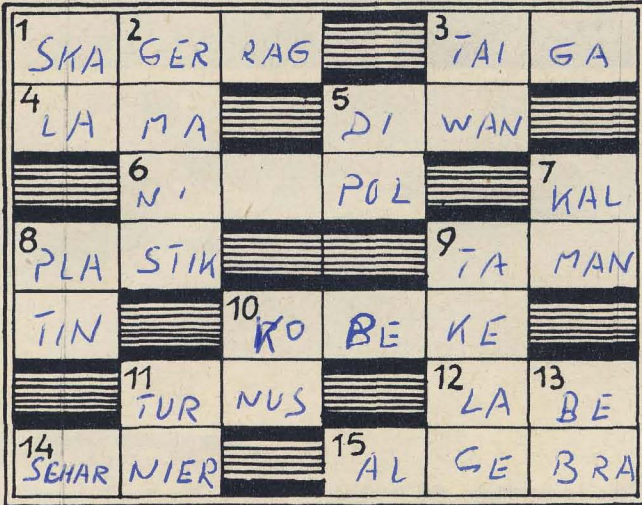 1 SKA 2 GER RAG 3 TAI GA
4 LA MA 5 DI WAN
6 NI POL 7 KAL
8 PLA STIK 9 TA MAN
TIN 10 KO BE KE
11 TUR NUS 12 LA 13 BE
14 SCHAR NIER 15 AL GE BRA